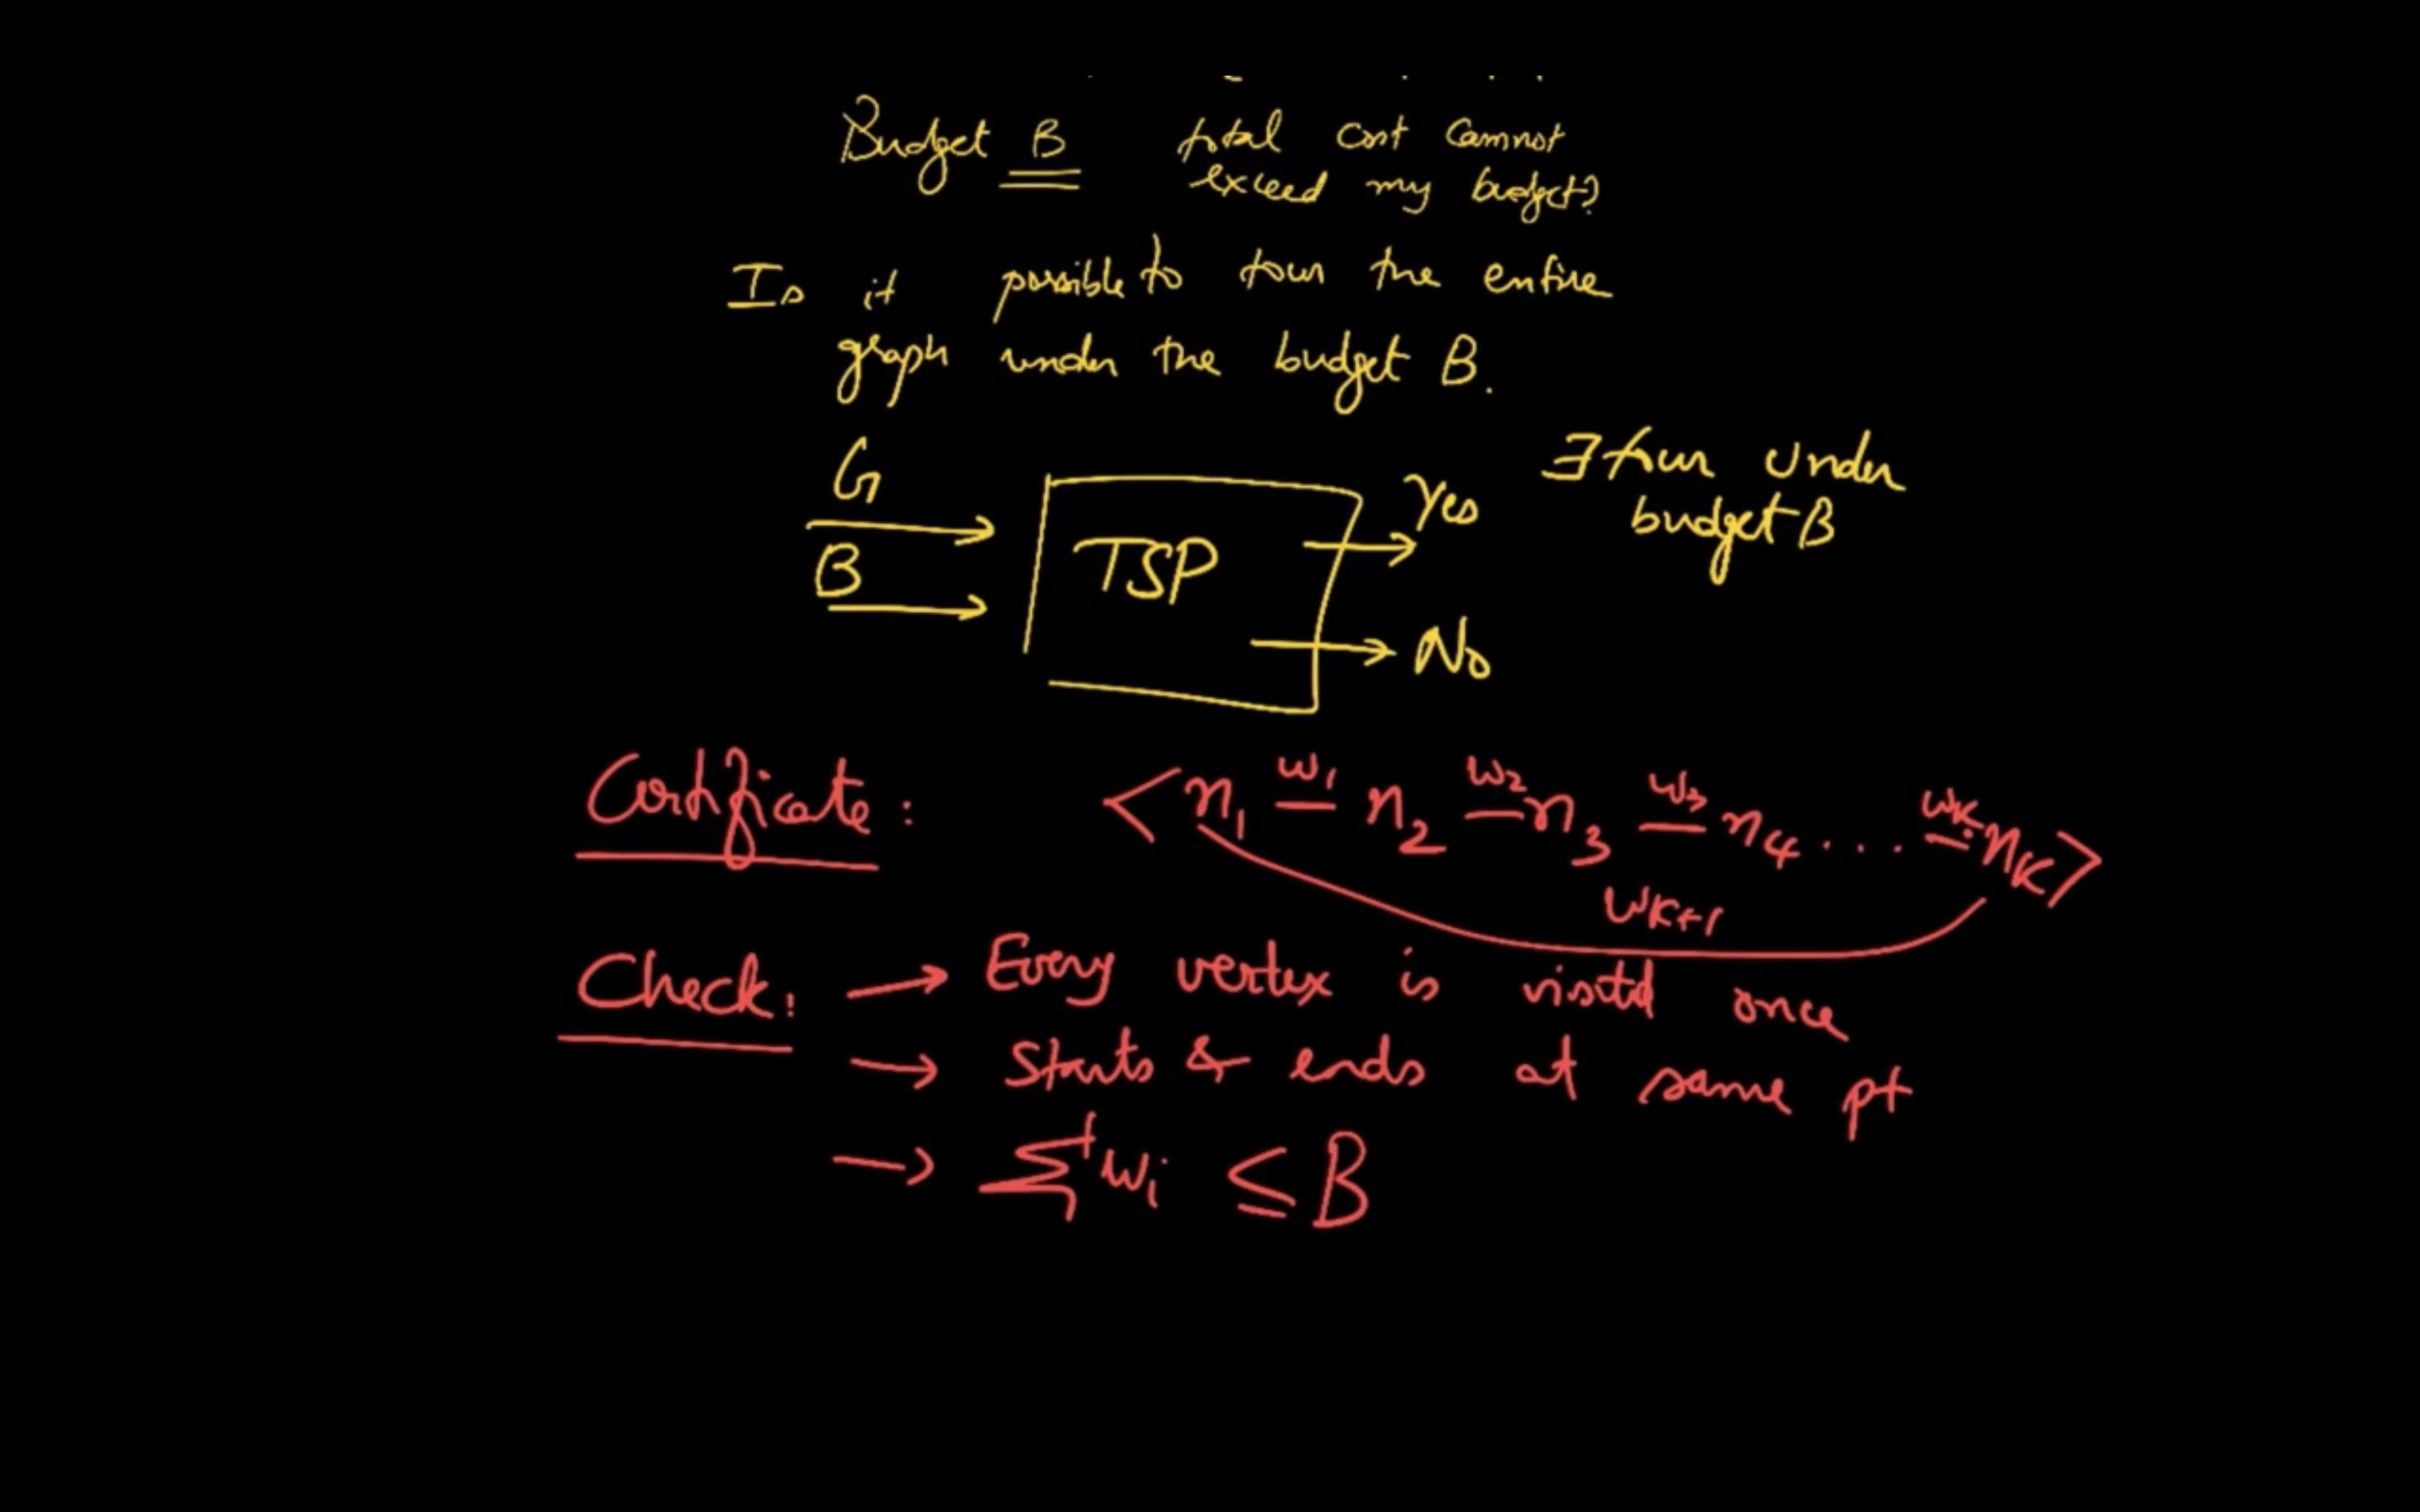 Budget B total cost cannot
exceed my budget?
Is it possible to tour the entire
graph under the budget B.
G
B
TSP
Yes
No
∃ tour under
budget B
Certificate: <n₁ —w₁— n₂ —w₂— n₃ —w₃— n₄ ... —wₖ— nₖ>
wₖ₊₁
Check: → Every vertex is visited once
→ Starts & ends at same pt
→ Σ wᵢ ≤ B